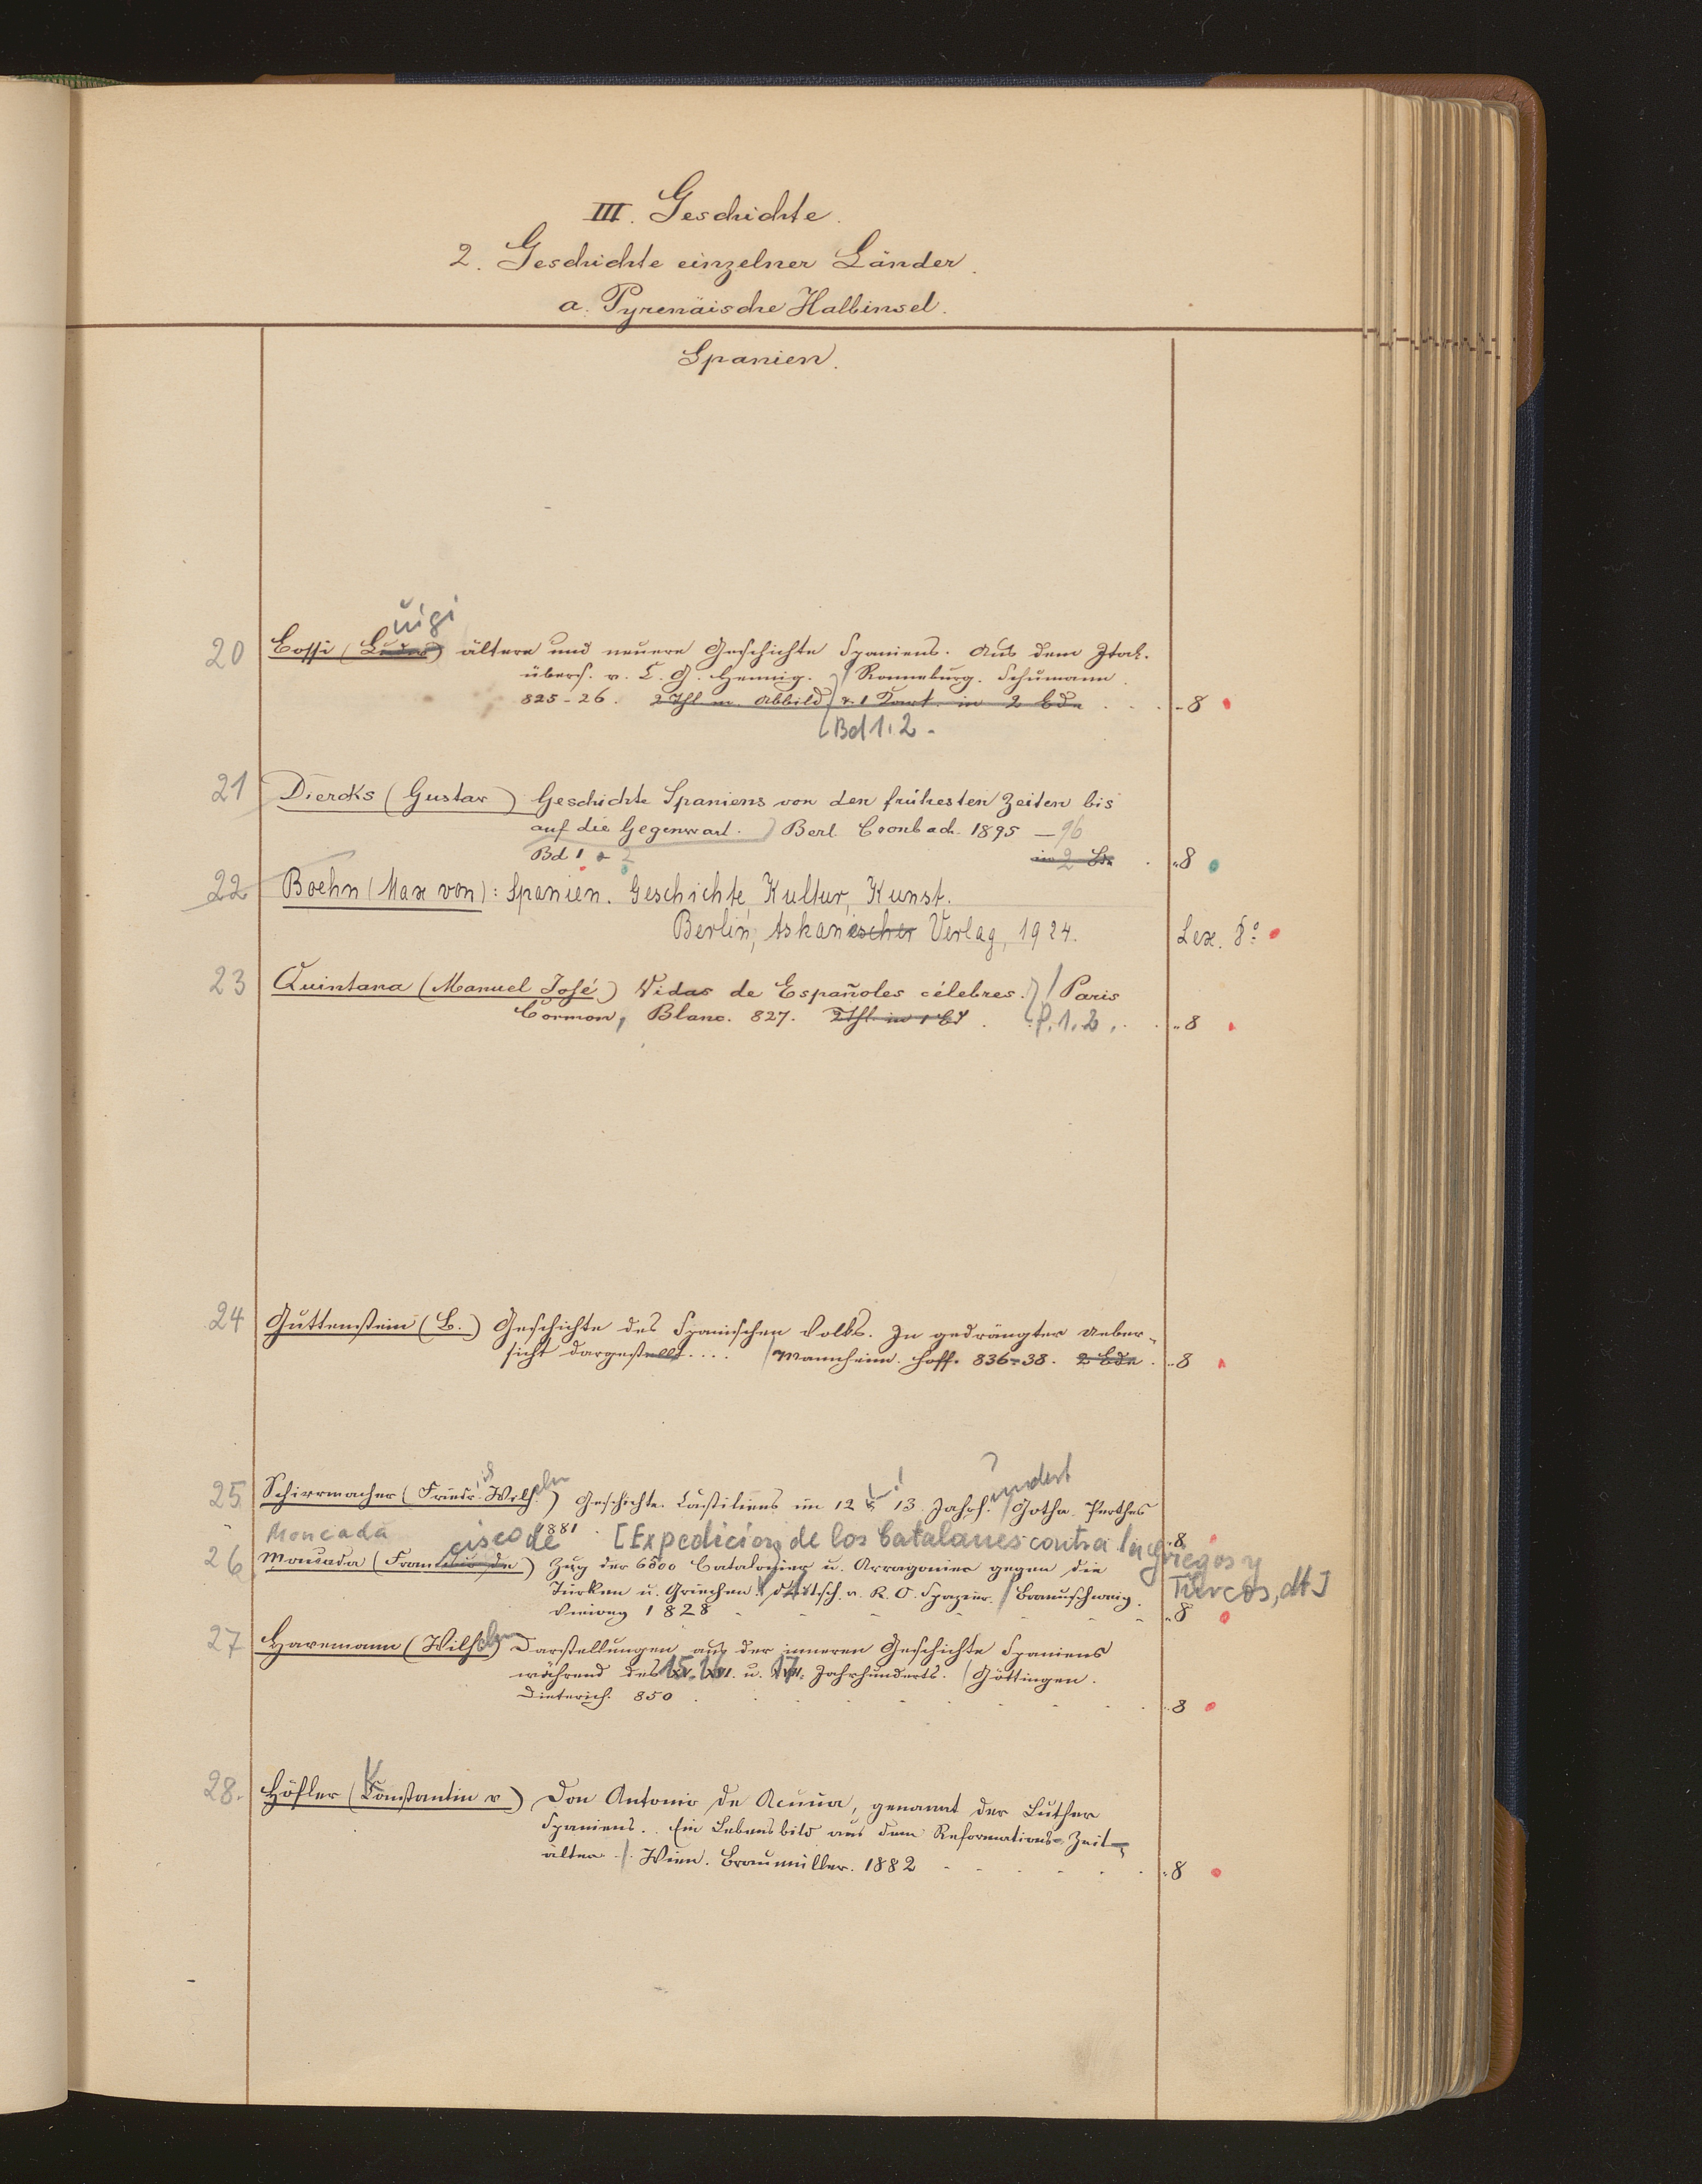 III. Geschichte.
2. Geschichte einzelner Länder.
a. Pyrenäische Halbinsel.
Spanien.
uigi
20 Cossi (L ältere und neuere Geschichte Spaniens. Aus dem Ital.
übers. v. C. G. Hennig. / Ronneburg. Schumann.
825-26. 2 Thl m. Abbild u. 1 Kart. in 2 Bde - 8
Bd 1. 2 -
21 Diercks (Gustav) Geschichte Spaniens von den frühesten Zeiten bis
auf die Gegenwart. Berl. Cronbach. 1895 - 96
Bd 1 2 in 2 Bde „ 8
22 Boehn (Max von): Spanien. Geschichte, Kultur, Kunst.
Berlin, Askanischer Verlag, 1924. Lex. 8°
23 Quintana (Manuel José) Vidas de Españoles célebres. / Paris
Cormon, Blanc. 827. 2 Thl. in 1 Bd P. 1. 2. „ 8
24 Guttenstein (B.) Geschichte des Spanischen Volks. In gedrängter Ueber-
sicht dargestellt.... / Mannheim. Hoff. 836-38. 2 Bde. „ 8
25 Schirrmacher (Friedr. Wilh.elm) Geschichte Castiliens im 12 & 13. Jahrh.undert / Gotha Perthes
1881. „ 8
Moncada cisco de [Expedicion de los Catalanes contra Griegos y
26 Moncada (Fran ) Zug der 6500 Catalonier u. Arragonier gegen die Turcos, dt]
Türken u. Griechen. deutsch v. R. O. Spazier. / Braunschweig.
Vieweg 1828 „ 8
27 Havemann (Wilhelm) Darstellungen aus der inneren Geschichte Spaniens
während des XV. XVI. u. XVII. 15. 16. 17. Jahrhunderts. / Göttingen.
Dieterich. 850 „ 8
28. Höfler (Konstantin v) Don Antonio de Acuña, genannt der Luther
Spaniens. Ein Lebensbild aus dem Reformations-Zeit-
alter. / Wien. Braumüller. 1882 „ 8